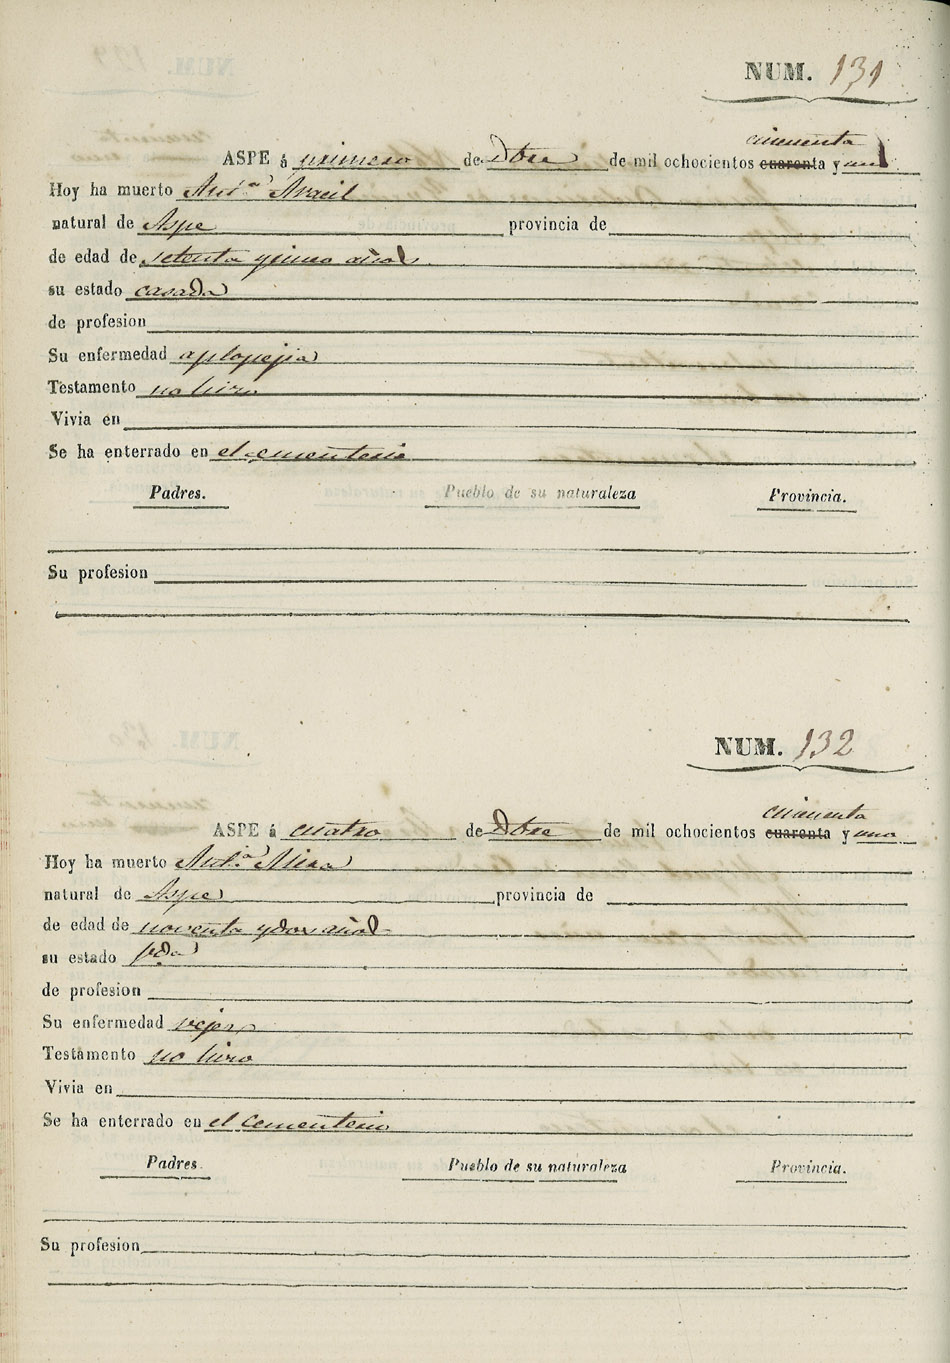 NUM. 131
cincuenta
ASPE á primero de Dbre de mil ochocientos cuarenta y uno
Hoy ha muerto Ant.ª Aracil
natural de Aspe provincia de
de edad de setenta y cinco años
su estado casada
de profesion
Su enfermedad
Testamento no hizo
Vivia en
Se ha enterrado en el cementerio
Padres. Pueblo de su naturaleza Provincia.
Su profesion
NUM. 132
cincuenta
ASPE á cuatro de Dbre de mil ochocientos cuarenta y uno
Hoy ha muerto Ant.ª Mira
natural de Aspe provincia de
de edad de noventa y dos años
su estado Vda
de profesion
Su enfermedad vejez
Testamento no hizo
Vivia en
Se ha enterrado en el cementerio
Padres. Pueblo de su naturaleza Provincia.
Su profesion